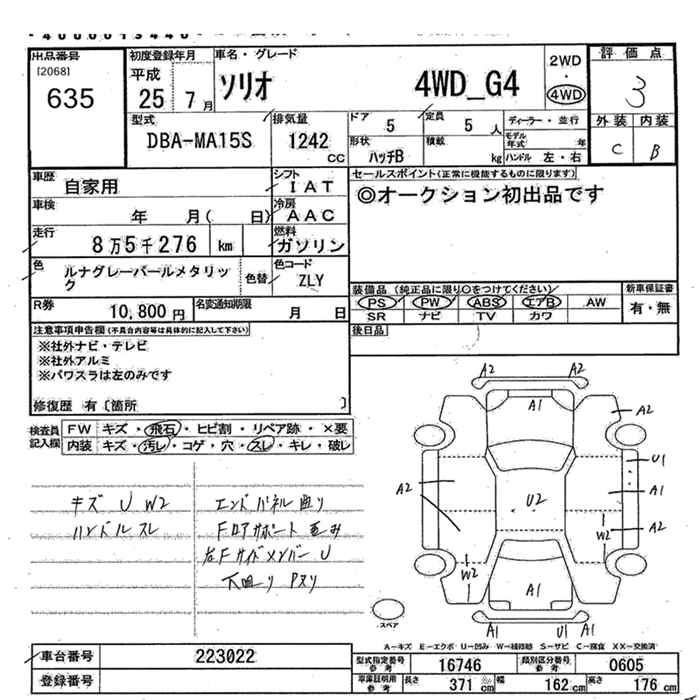 出品番号
[2068]
635
初度登録年月
平成
25 7 月
車名・グレード
ソリオ 4WD_G4
2WD
・
4WD
評価点
3
外装 内装
C B
型式
DBA-MA15S
排気量
1242
cc
ドア 5
定員 5 人
形状
ハッチB
積載 kg
ディーラー・並行
モデル年式 年
ハンドル 左・右
車歴 自家用
シフト
IAT
車検 年 月( 日)
冷房
AAC
走行
8万5千276 km
燃料
ガソリン
色
ルナグレーパールメタリック
色替
色コード
ZLY
R券 10,800円
名変通知期限 月 日
セールスポイント(正常に機能するものに限ります)
◎オークション初出品です
装備品(純正品に限り○をつけてください)
新車保証書
PS PW ABS エアB AW
SR ナビ TV カワ
有・無
後日品
注意事項申告欄(不具合内容等は具体的に記入して下さい)
※社外ナビ・テレビ
※社外アルミ
※パワスラは左のみです
修復歴 有〔箇所 〕
検査員記入欄
FW キズ・飛石・ヒビ割・リペア跡・×要
内装 キズ・汚レ・コゲ・穴・スレ・キレ・破レ
キズ U W2
ハンドルスレ
エンドパネル曲り
Fロアサポート歪み
右Fサイドメンバー U
下廻り Pヌリ
A2 A2
A1
A2
A2
U1
A1
U2
A2
W2
W2
A1
A1 U1 A1
スペア
A-キズ E-エクボ U-凹み W-補修跡 S-サビ C-腐食 XX-交換済
車台番号 223022
登録番号
型式指定番号参考 16746
類別区分番号参考 0605
車庫証明用参考
長さ 371 cm
幅 162 cm
高さ 176 cm